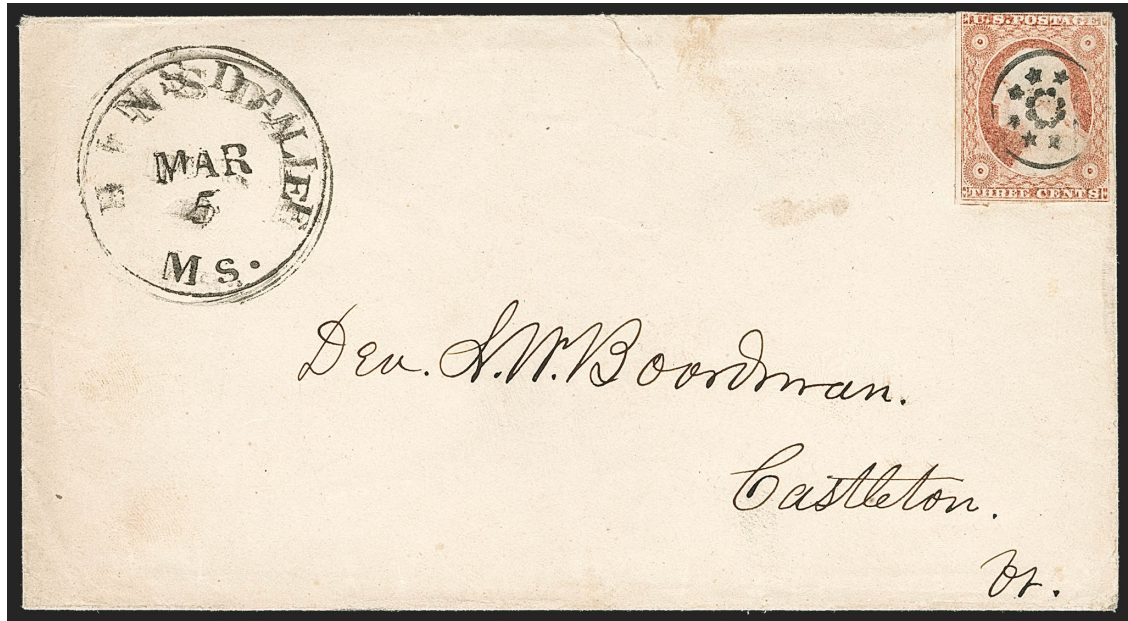 HINSDALE
MAR
5
Ms.
U.S. POSTAGE
THREE CENTS
Dea. S. W. Boardman.
Castleton.
Vt.